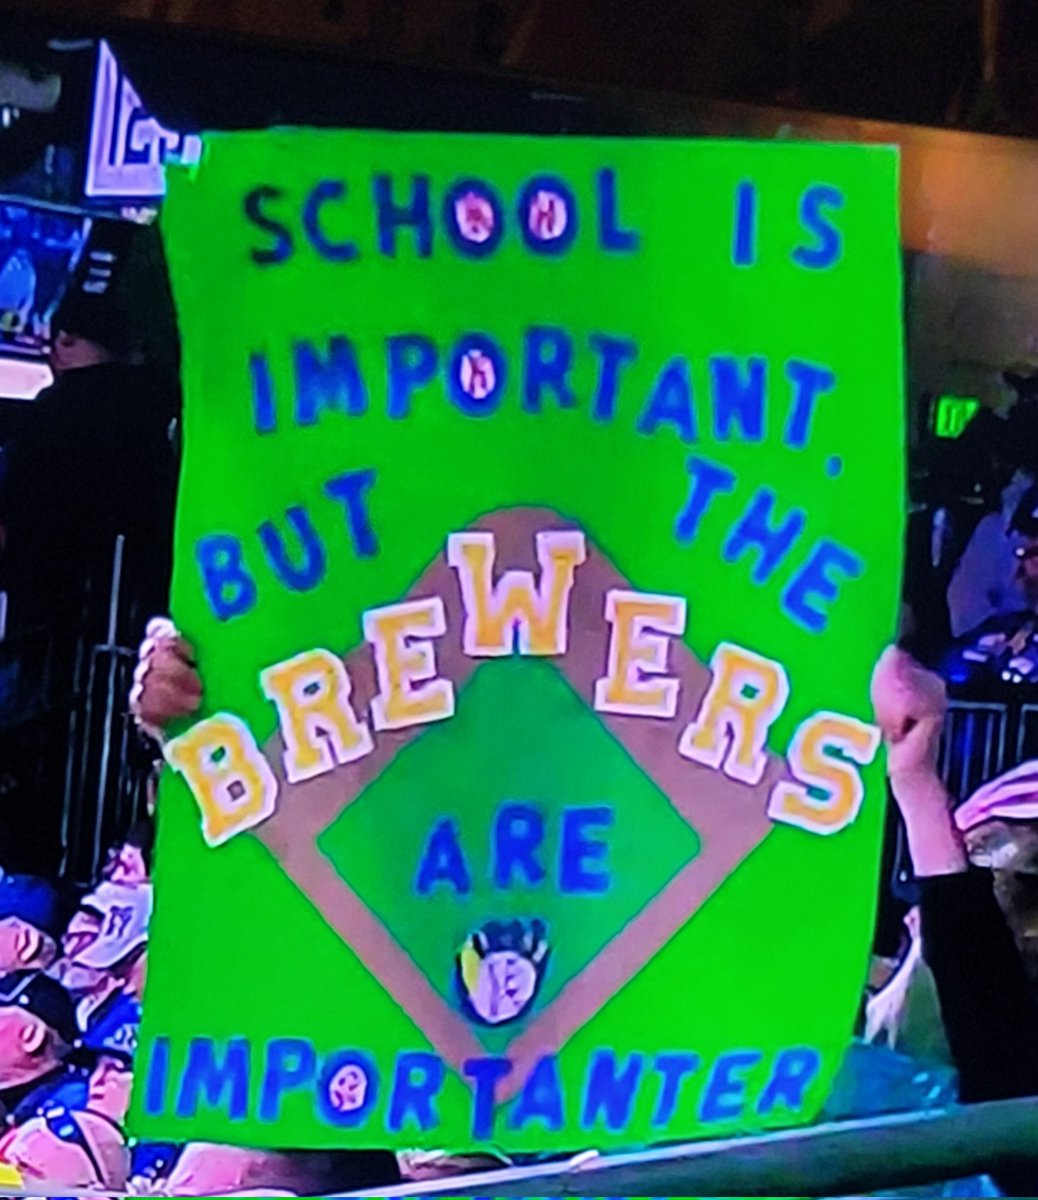 SCHOOL IS
IMPORTANT,
BUT THE
BREWERS
ARE
IMPORTANTER